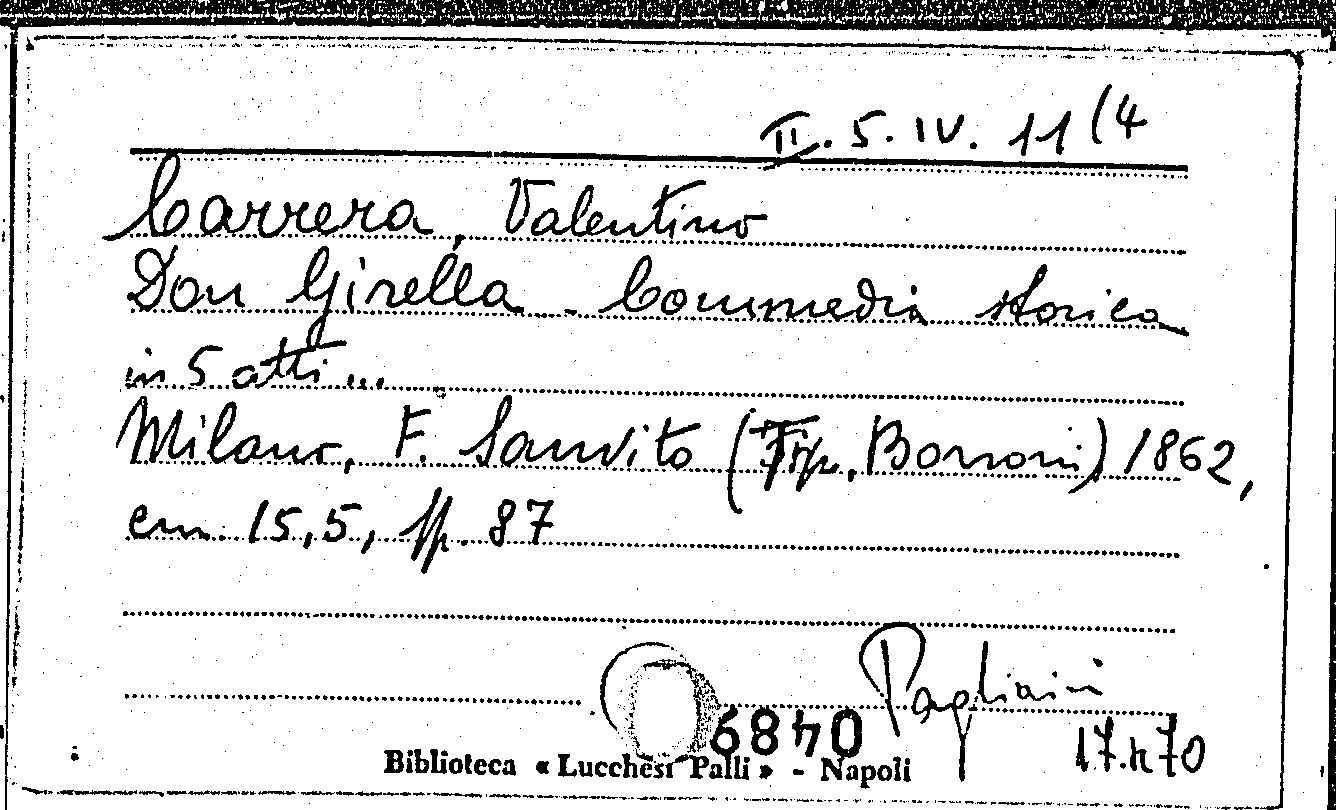 II. 5. IV. 11 (4
Carrera, Valentino
Don Girella - Commedia storica
in 5 atti...
Milano, F. Sanvito (Tip. Borroni) 1862,
cm. 15,5, pp. 87
Pagliaini
Biblioteca « Lucchesi Palli » - Napoli